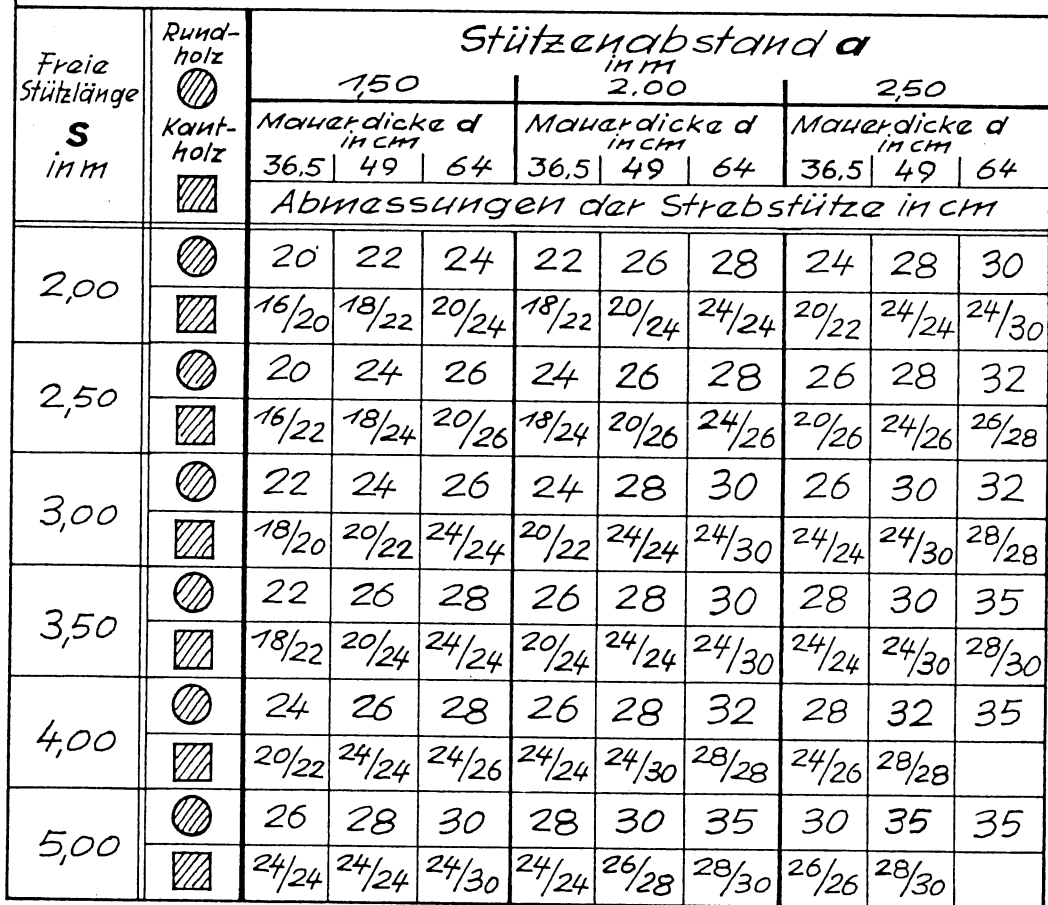 Freie
Stützlänge
s
in m
Rund-
holz
Kant-
holz
Stützenabstand a
in m
1,50 2,00 2,50
Mauerdicke d Mauerdicke d Mauerdicke d
in cm in cm in cm
36,5 49 64 36,5 49 64 36,5 49 64
Abmessungen der Strebstütze in cm
2,00
20 22 24 22 26 28 24 28 30
16/20 18/22 20/24 18/22 20/24 24/24 20/22 24/24 24/30
2,50
20 24 26 24 26 28 26 28 32
16/22 18/24 20/26 18/24 20/26 24/26 20/26 24/26 26/28
3,00
22 24 26 24 28 30 26 30 32
18/20 20/22 24/24 20/22 24/24 24/30 24/24 24/30 28/28
3,50
22 26 28 26 28 30 28 30 35
18/22 20/24 24/24 20/24 24/24 24/30 24/24 24/30 28/30
4,00
24 26 28 26 28 32 28 32 35
20/22 24/24 24/26 24/24 24/30 28/28 24/26 28/28
5,00
26 28 30 28 30 35 30 35 35
24/24 24/24 24/30 24/24 26/28 28/30 26/26 28/30